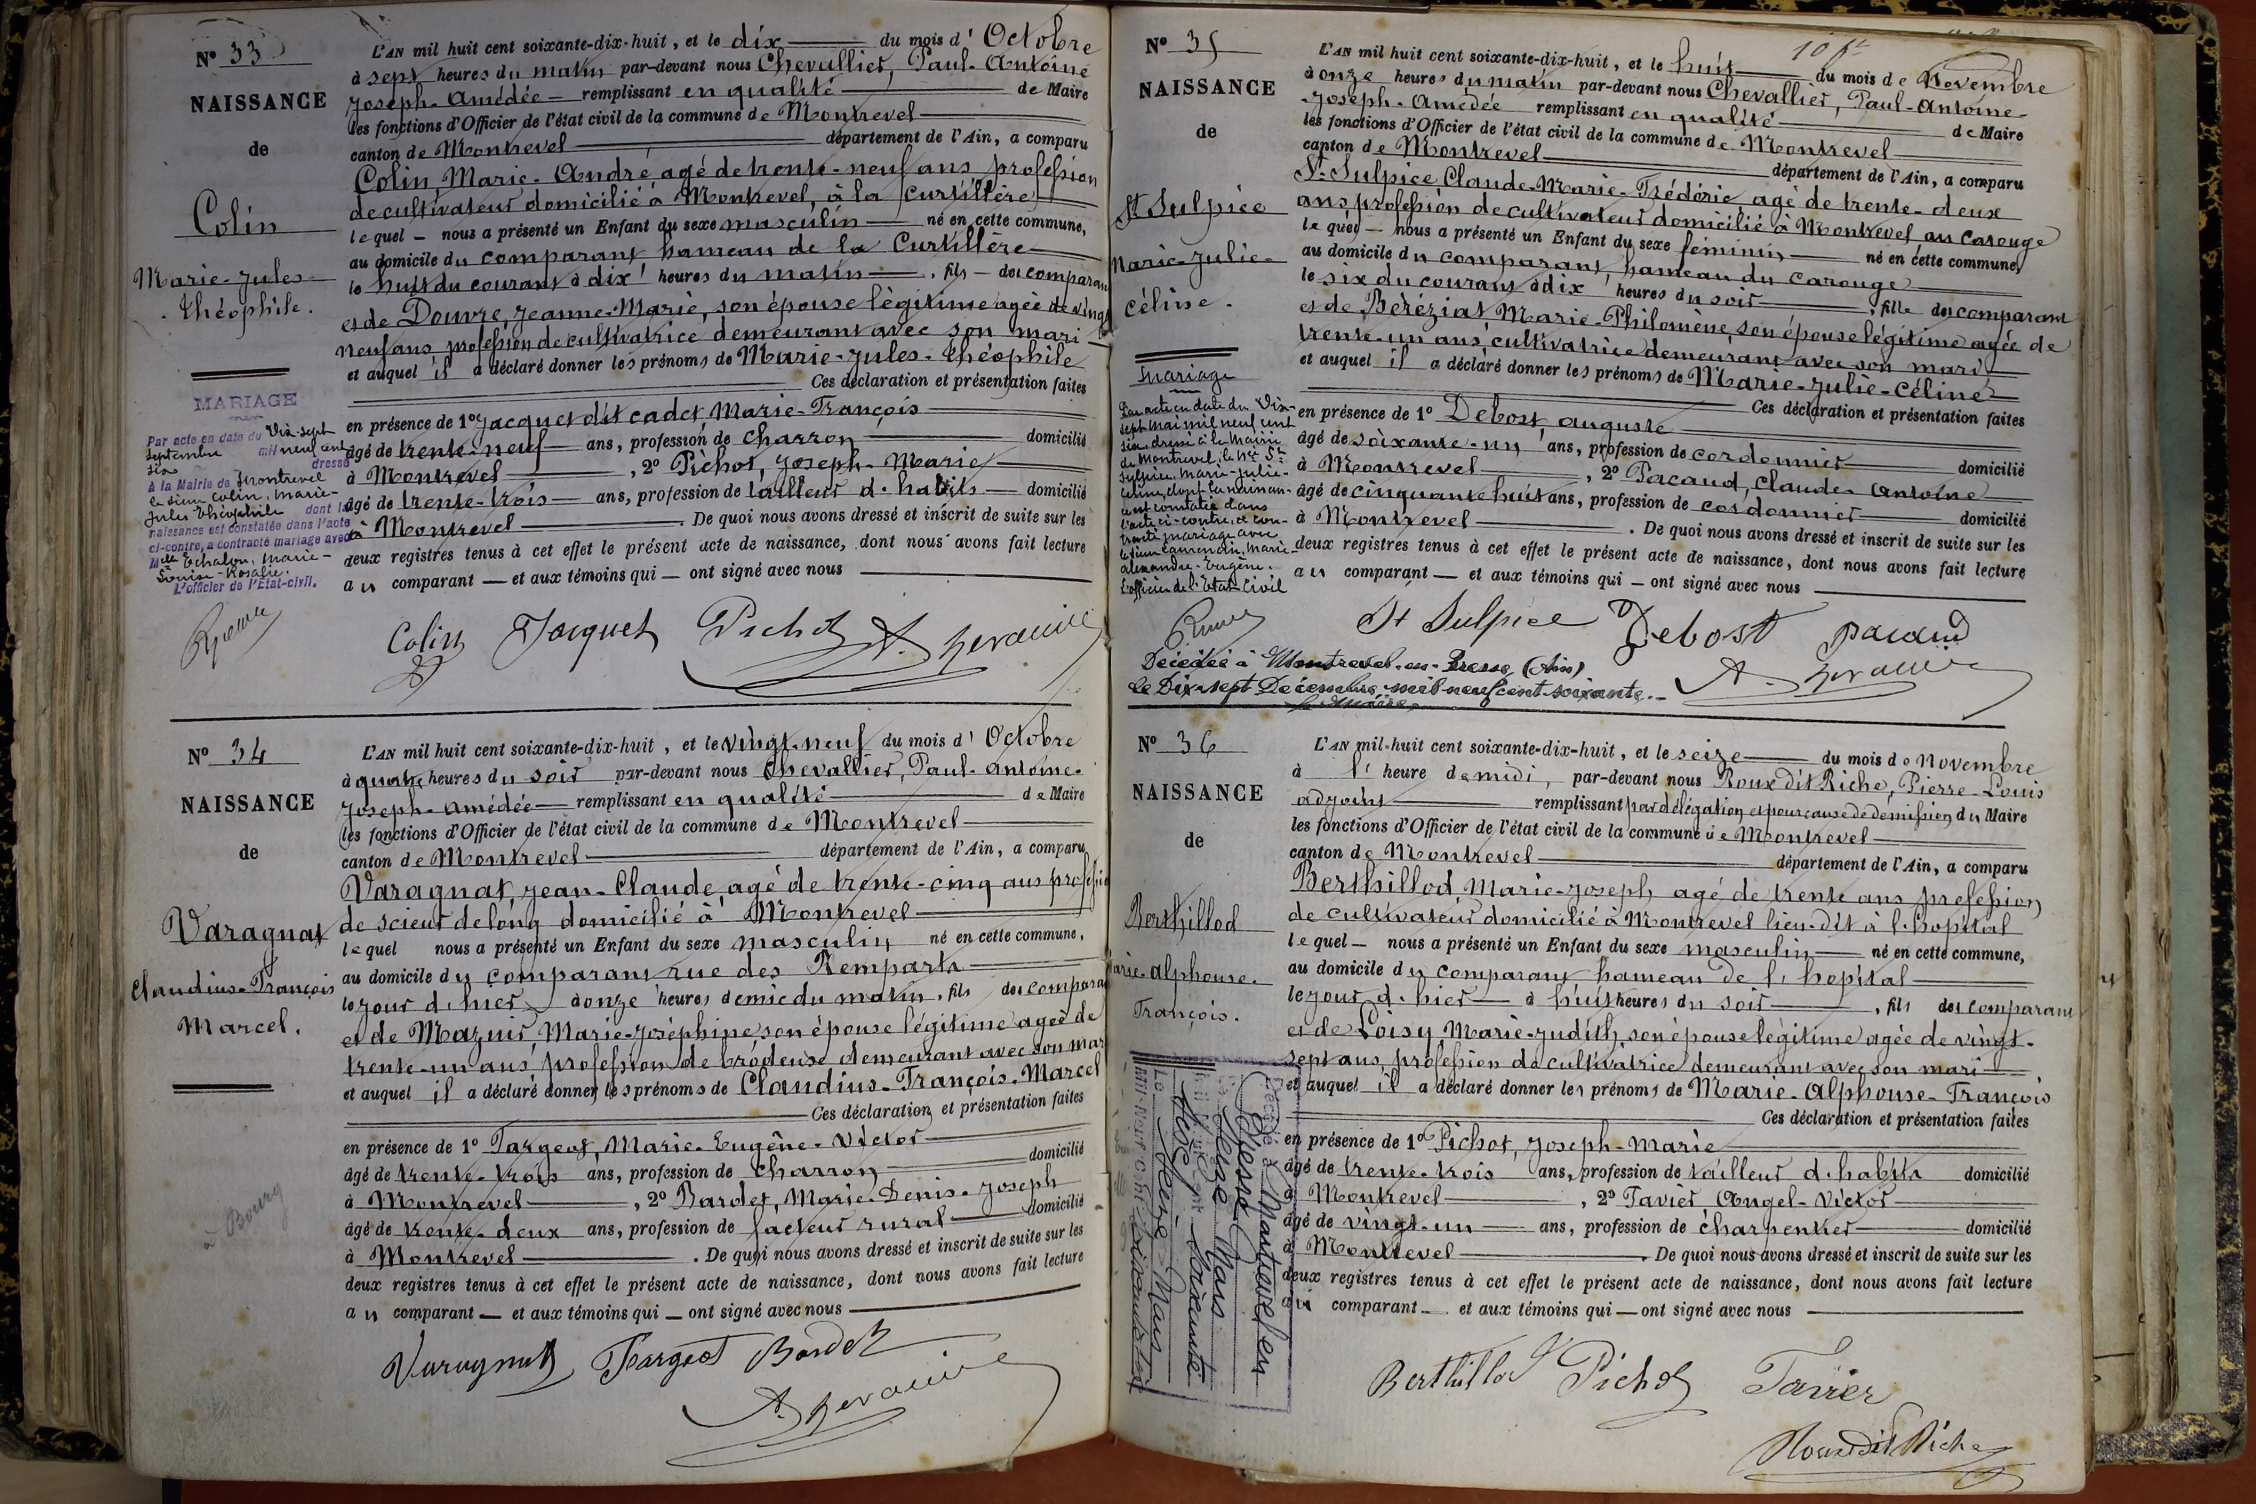 N° 33
NAISSANCE
de
Colin
Marie-Jules-
Théophile.
MARIAGE
Par acte en date du Dix-sept
septembre mil neuf cent
six dressé
à la Mairie de Montrevel
le sieur Colin, Marie-
Jules Théophile dont la
naissance est constatée dans l'acte
ci-contre, a contracté mariage avec
Melle Echalon, Marie-
Louise-Rosalie.
L'officier de l'Etat-civil.
L'AN mil huit cent soixante-dix-huit, et le dix du mois d'Octobre
à sept heures du matin par-devant nous Chevallier, Paul-Antoine
Joseph-Amédée remplissant en qualité de Maire
les fonctions d'Officier de l'état civil de la commune de Montrevel
canton de Montrevel département de l'Ain, a comparu
Colin, Marie-André agé de trente-neuf ans profession
de cultivateur domicilié à Montrevel, à la Curtillère
lequel nous a présenté un Enfant du sexe masculin né en cette commune,
au domicile du comparant hameau de la Curtillère
le huit du courant à dix heures du matin, fils des comparant
et de Douvre, Jeanne-Marie, son épouse légitime agée de vingt
neuf ans profession de cultivatrice demeurant avec son mari
et auquel il a déclaré donner les prénoms de Marie-Jules-Théophile
Ces déclaration et présentation faites
en présence de 1° Jacquet dit cadet, Marie-François
âgé de trente-neuf ans, profession de charron domicilié
à Montrevel, 2° Pichot, Joseph-Marie
âgé de trente-trois ans, profession de tailleur d'habits domicilié
à Montrevel. De quoi nous avons dressé et inscrit de suite sur les
deux registres tenus à cet effet le présent acte de naissance, dont nous avons fait lecture
au comparant et aux témoins qui ont signé avec nous
Colin Jacquet Pichot
N° 34
NAISSANCE
de
Varagnat
Claudius-François
Marcel.
Bourg
L'AN mil huit cent soixante-dix-huit, et le vingt-neuf du mois d'Octobre
à quatre heures du soir par-devant nous Chevallier, Paul-Antoine-
Joseph-Amédée remplissant en qualité de Maire
les fonctions d'Officier de l'état civil de la commune de Montrevel
canton de Montrevel département de l'Ain, a comparu
Varagnat, Jean-Claude, agé de trente-cinq ans profession
de scieur de long domicilié à Montrevel
lequel nous a présenté un Enfant du sexe masculin né en cette commune,
au domicile du comparant rue des Remparts
le jour d'hier à onze heures demie du matin, fils des comparant
et de Mazuir, Marie-Joséphine son épouse légitime agée de
trente-un ans, profession de brodeuse demeurant avec son mari
et auquel il a déclaré donner les prénoms de Claudius-François-Marcel
Ces déclaration et présentation faites
en présence de 1° Targeat, Marie-Eugène-Victor
âgé de trente-trois ans, profession de charron domicilié
à Montrevel, 2° Bardet, Marie-Denis-Joseph
âgé de trente-deux ans, profession de facteur rural domicilié
à Montrevel. De quoi nous avons dressé et inscrit de suite sur les
deux registres tenus à cet effet le présent acte de naissance, dont nous avons fait lecture
au comparant et aux témoins qui ont signé avec nous
Varagnat Targeat Bardet
N° 35
NAISSANCE
de
St Sulpice
Marie-Julie-
Céline.
Mariage
Par acte en date du Dix-
sept Mai mil neuf cent
six dressé à la Mairie
de Montrevel, la Melle St
Sulpice Marie-Julie-
Céline, dont la naissan-
ce est constatée dans
l'acte ci-contre, a con-
tracté mariage avec
le sieur Laurencin, Marie-
Alexandre-Eugène.
L'officier de l'Etat Civil
10 fr
L'AN mil huit cent soixante-dix-huit, et le huit du mois de Novembre
à onze heures du matin par-devant nous Chevallier, Paul-Antoine-
Joseph-Amédée remplissant en qualité de Maire
les fonctions d'Officier de l'état civil de la commune de Montrevel
canton de Montrevel département de l'Ain, a comparu
St Sulpice Claude-Marie-Frédéric agé de trente-deux
ans profession de cultivateur domicilié à Montrevel au Carouge
lequel nous a présenté un Enfant du sexe féminin né en cette commune,
au domicile du comparant, hameau du Carouge
le six du courant à dix heures du soir, fille des comparant
et de Béréziat Marie-Philomène, son épouse légitime agée de
trente-un ans, cultivatrice demeurant avec son mari
et auquel il a déclaré donner les prénoms de Marie-Julie-Céline
Ces déclaration et présentation faites
en présence de 1° Debost, auguste
âgé de soixante-un ans, profession de cordonnier domicilié
à Montrevel, 2° Pacaud, Claude-Antoine
âgé de cinquante huit ans, profession de cordonnier domicilié
à Montrevel. De quoi nous avons dressé et inscrit de suite sur les
deux registres tenus à cet effet le présent acte de naissance, dont nous avons fait lecture
au comparant et aux témoins qui ont signé avec nous
St Sulpice Debost Pacaud
Décédée à Montrevel-en-Bresse (Ain)
le Dix-sept Décembre mil neuf cent soixante.
N° 36
NAISSANCE
de
Berthillod
Marie-Alphonse-
François.
Décédé à Montrevel en
Bresse
L'AN mil-huit cent soixante-dix-huit, et le seize du mois de Novembre
à l'heure de midi, par-devant nous Roux dit Riche, Pierre-Louis
adjoint remplissant par délégation et pour cause de démission du Maire
les fonctions d'Officier de l'état civil de la commune de Montrevel
canton de Montrevel département de l'Ain, a comparu
Berthillod Marie-Joseph agé de trente ans profession
de cultivateur domicilié à Montrevel lieu-dit à l'hopital
lequel nous a présenté un Enfant du sexe masculin né en cette commune,
au domicile du comparant hameau de l'hopital
le jour d'hier à huit heures du soir, fils des comparant
et de Loisy, Marie-Judith, son épouse légitime agée de vingt-
sept ans, profession de cultivatrice demeurant avec son mari
et auquel il a déclaré donner les prénoms de Marie-Alphonse-François
Ces déclaration et présentation faites
en présence de 1° Pichot, Joseph-Marie
âgé de trente-trois ans, profession de tailleur d'habits domicilié
à Montrevel, 2° Tavier, Angel-Victor
âgé de vingt-un ans, profession de charpentier domicilié
à Montrevel. De quoi nous avons dressé et inscrit de suite sur les
deux registres tenus à cet effet le présent acte de naissance, dont nous avons fait lecture
au comparant et aux témoins qui ont signé avec nous
Berthillod Pichot Tavier
Roux dit Riche